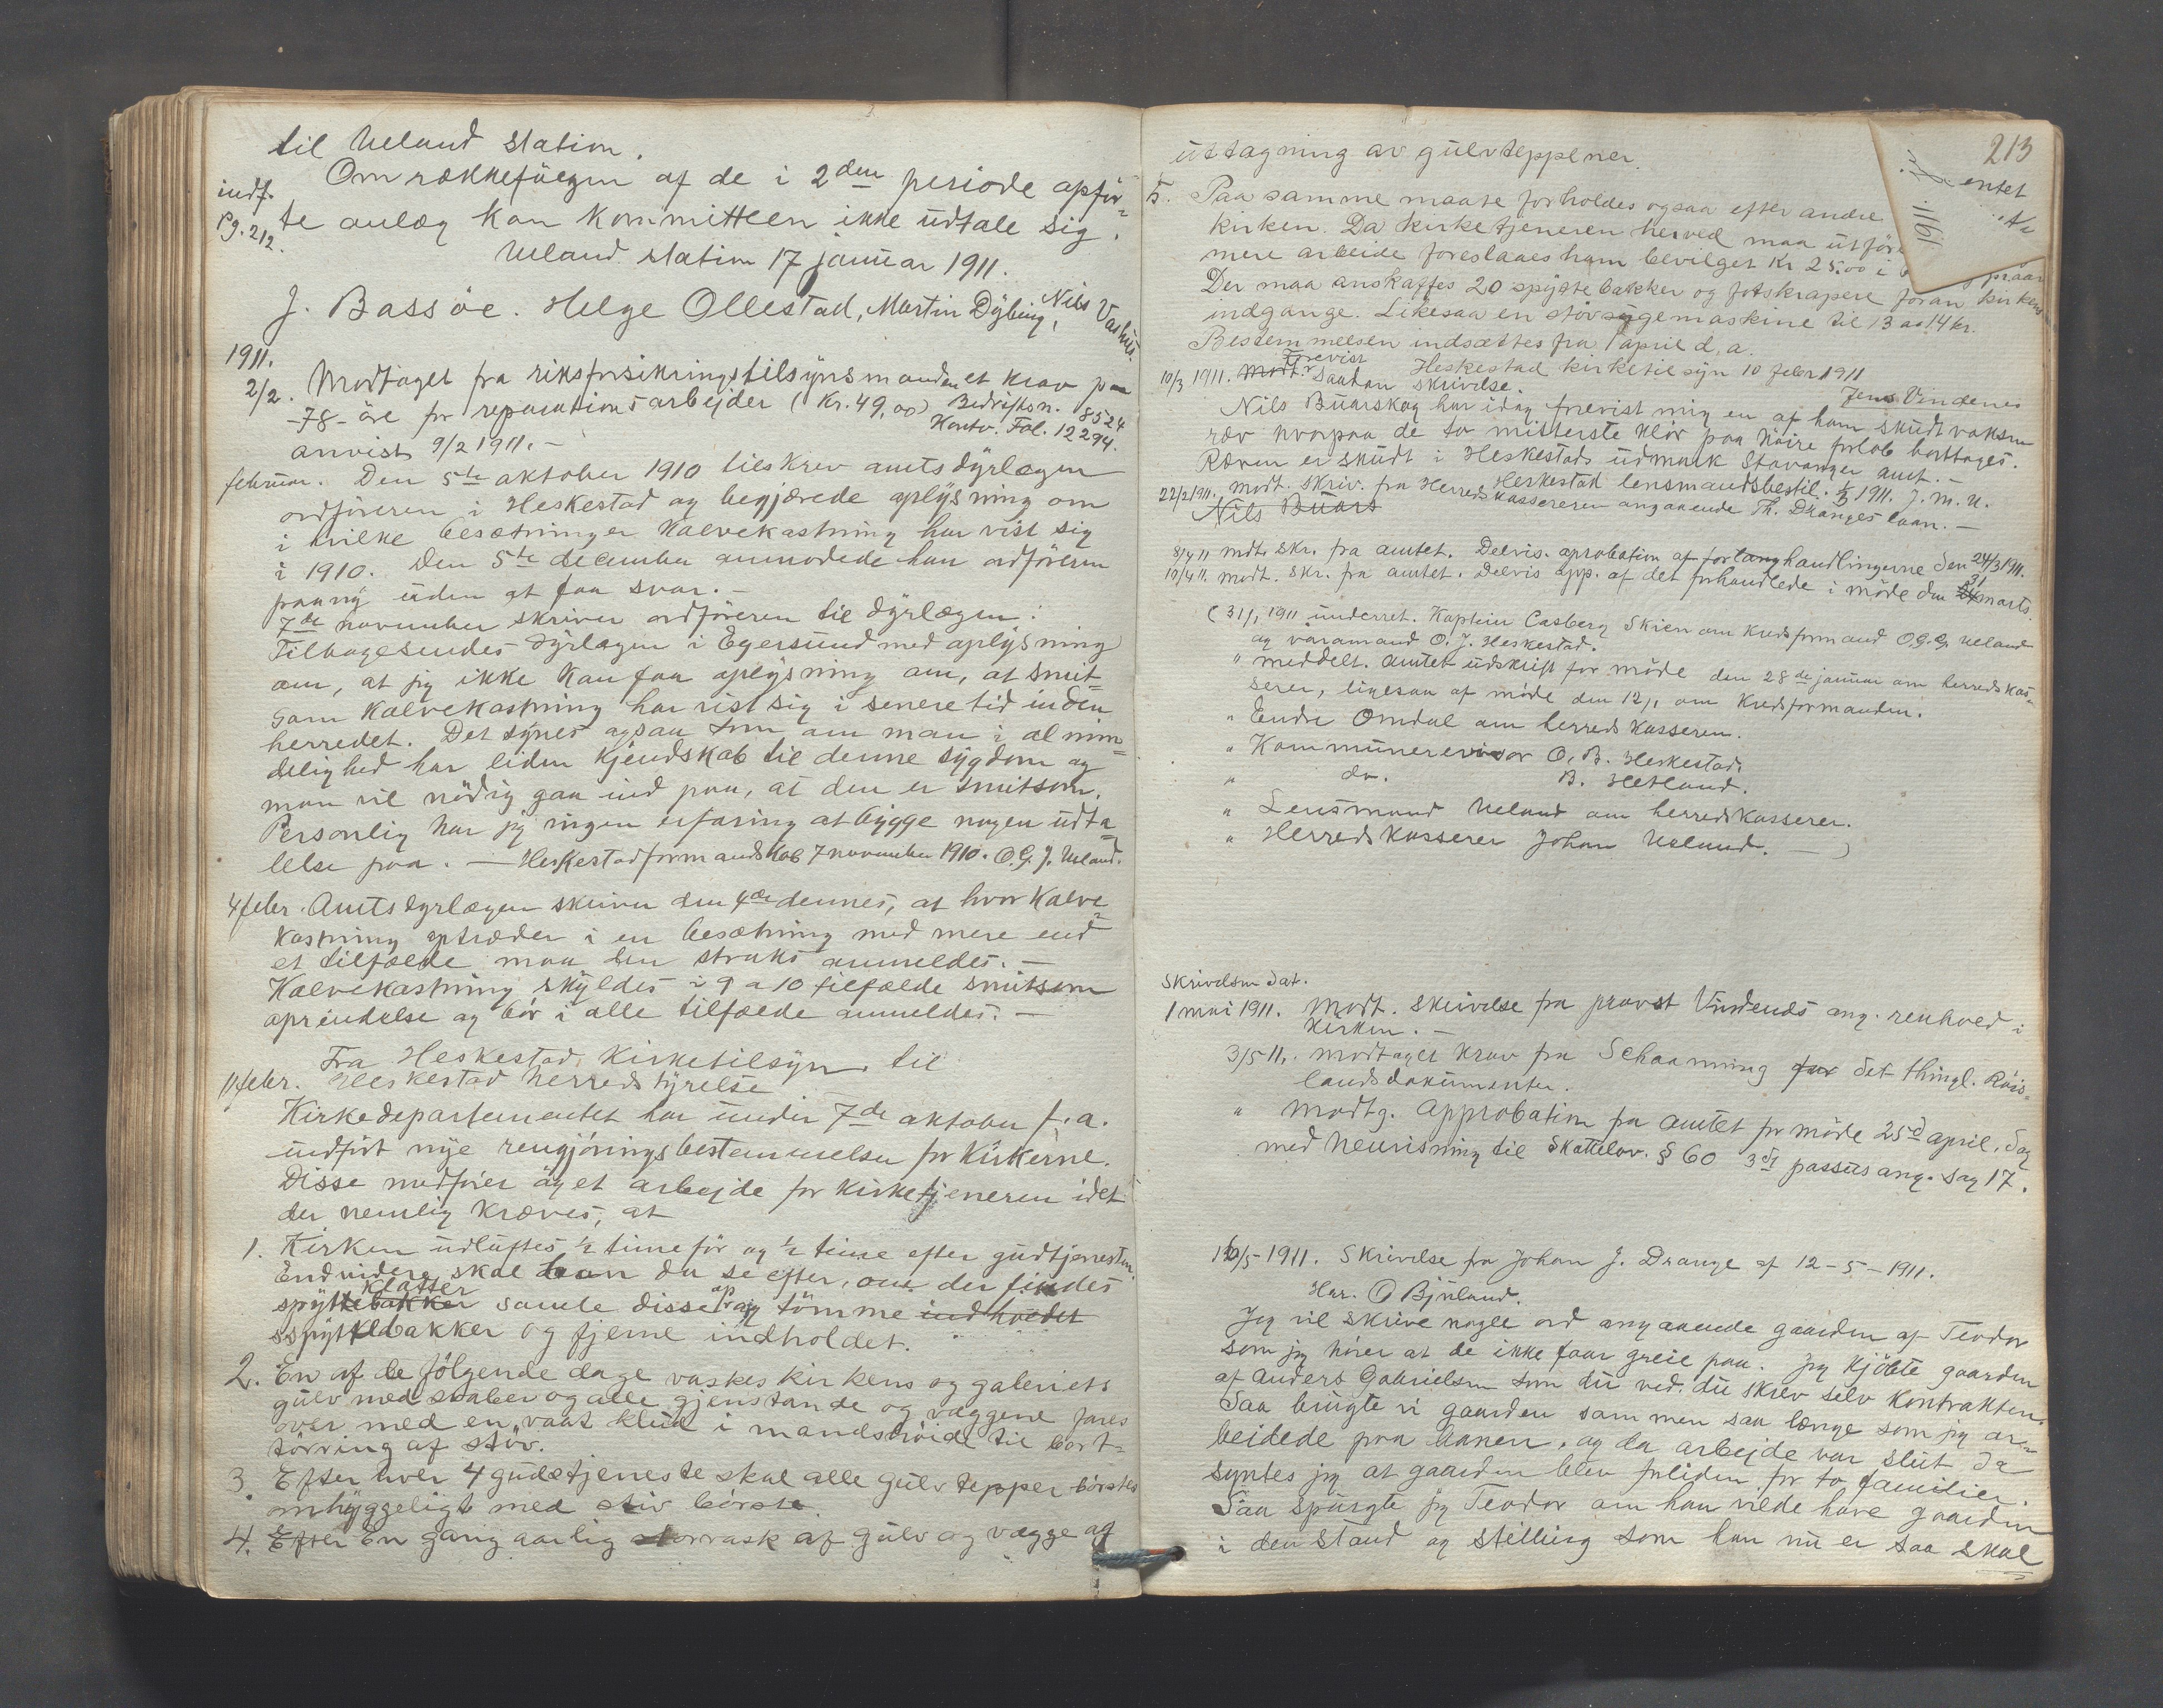 til Ueland station.
Om rækkefølgen af de i 2den periode opfør-
indf.
pg. 212.
te anlæg kan kommitteen ikke udtale sig.
Ueland station 17 januar 1911.
J. Bassøe. Helge Ollestad, Martin Dybing, Nils Vashus.
1911.
2/2. Modtaget fra riksforsikringstilsynsmanden et krav paa
-78- øre for reparationsarbejder (Kr. 49,00) Bedriftsn. 8524
Konto. Fol. 12294.
anvist 9/2 1911. -
februar. Den 5te oktober 1910 tilskrev amtsdyrlægen
ordføreren i Heskestad og begjærede oplysning om
i hvilke besætninger kalvekastning har vist sig
i 1910. Den 5te december anmodede han ordføreren
paany uden at faa svar. -
7de november skriver ordføreren til dyrlægen:
Tilbagesendes dyrlægen i Egersund med oplysning
om, at jeg ikke kan faa oplysning om, at smit-
som kalvekastning har vist sig i senere tid inden
herredet. Det synes ogsaa som om man i almin-
delighed har liden kjendskab til denne sygdom og
man vil nødig gaa ind paa, at den er smitsom.
Personlig har jeg ingen erfaring at bygge nogen udta-
lelse paa. - Heskestad formandskab 7 november 1910. O. G. J. Ueland.
4 febr. Amtsdyrlægen skriver den 4de dennes, at hvor kalve-
kastning optræder i en besætning med mere end
et tilfælde maa den straks anmeldes. -
Kalvekastning skyldes i 9 a 10 tilfælde smitsom
oprindelse og bør i alle tilfælde anmeldes. -
Fra Heskestad Kirketilsyn til
11 febr. Heskestad herredstyrelse
Kirkedepartementet har under 7de oktober f.a.
indført nye rengjøringsbestemmelser for Kirkerne.
Disse medfører øget arbejde for kirketjeneren idet
der nemlig kræves, at
1. Kirken udluftes ½ time før og ½ time efter gudtjenesten.
Endvidere skal han da se efter, om der findes
klatter
spyttebakker samle disse op og tømme indholdet
spyttebakker og fjerne indholdet.
2. En af de følgende dage vaskes kirkens og galeriets
gulv med skaber og alle gjenstande og væggene fares
over med en vaat klud i mandshøide til bort-
tørring af støv.
3. Efter hver 4 gudstjeneste skal alle gulvtepper børstes
omhyggeligt med stiv børste
4. Efter En gang aarlig storvask af gulv og vægge og
213
entet
1911.
uttagning av gulvteppener.
5. Paa samme maate forholdes ogsaa efter andre
kirken. Da kirketjeneren herved maa utføre
mere arbeide foreslaaes ham bevilget Kr 25.00 i
Der maa anskaffes 20 spyttebakker og fotskrapere foran kirkens
indgange. Likesaa en støvsugemaskine til 13 a 14 kr.
Bestemmelsen indsættes fra 1 april d.a.
Heskestad kirketilsyn 10 febr 1911
Jens Vindenes
Forevist
10/3 1911. Modt. saadan skrivelse.
Nils Buarskog har idag forevist mig en af ham skudt voksen
ræv hvorpaa de to mitterste klør paa høire forlab borttoges.
Ræven er skudt i Heskestads udmark Stavanger amt. -
Heskestad lensmandsbestil. 1/3 1911. J. M. U.
22/2 1911. Modt. skriv. fra Herredskassereren angaaende Th. Dranges laan. -
Nils Buars
8/4 11 mdt. skr. fra amtet. Delvis. aprobation af forhandlingerne den 24/3 1911.
10/4 11. modt. skr. fra amtet. Delvis app. af det forhandlede i møde den 31 marts
(31/1 1911 underret. Kaptein Casberg Skien om kredsformand O.G.G. Ueland
og varamand O. J. Heskestad.
" meddelt. amtet udskrift for møde den 28de januar om herredskas-
serer, ligesaa af møde den 12/1 om kredsformanden.
" Endre Omdal om herredskasseren.
" Kommunerevisor O. B. Heskestad.
" do. B. Hetland.
" Lensmand Ueland om herredskasserer.
" Herredskasserer Johan Ueland. -)
Skrivelsen dat.
1 mai 1911. Modt. skrivelse fra provst Vindenes ang. renhved i
kirken. -
3/5 11. modtaget krav fra Schaanning for det thingl. Røis-
landsdokumenter.
" modtg. approbation fra amtet for møde 25de april. dag
med henvisning til Skattelov. § 60 3die passus ang. sag 17.
16/5 - 1911. Skrivelse fra Johan J. Drange af 12-5-1911.
Hrr. O Bjuland.
Jeg vil skrive nogle ord angaaende gaarden af Teodor
som jeg hører at de ikke faar greie paa. Jeg kjøbte gaarden
af Anders Gabrielsen som du ved. du skrev selv kontrakten.
Saa brugte vi gaarden sammen saa længe som jeg ar-
beidede paa banen, og da arbejde var slut da
syntes jeg at gaarden blev forliden for to familier.
Saa spurgte jeg Teodor om han vilde have gaarden
i den stand og stilling som han nu er saa skal